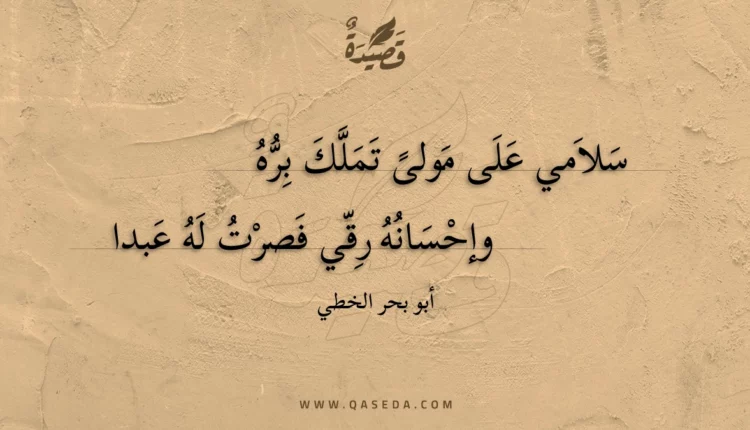 قَصِيْدَةٌ
سَلاَمي عَلَى مَولىً تَمَلَّكَ بِرُّهُ
وإحْسَانُهُ رِقّي فَصرْتُ لَهُ عَبدا
أبو بحر الخطي
WWW.QASEDA.COM